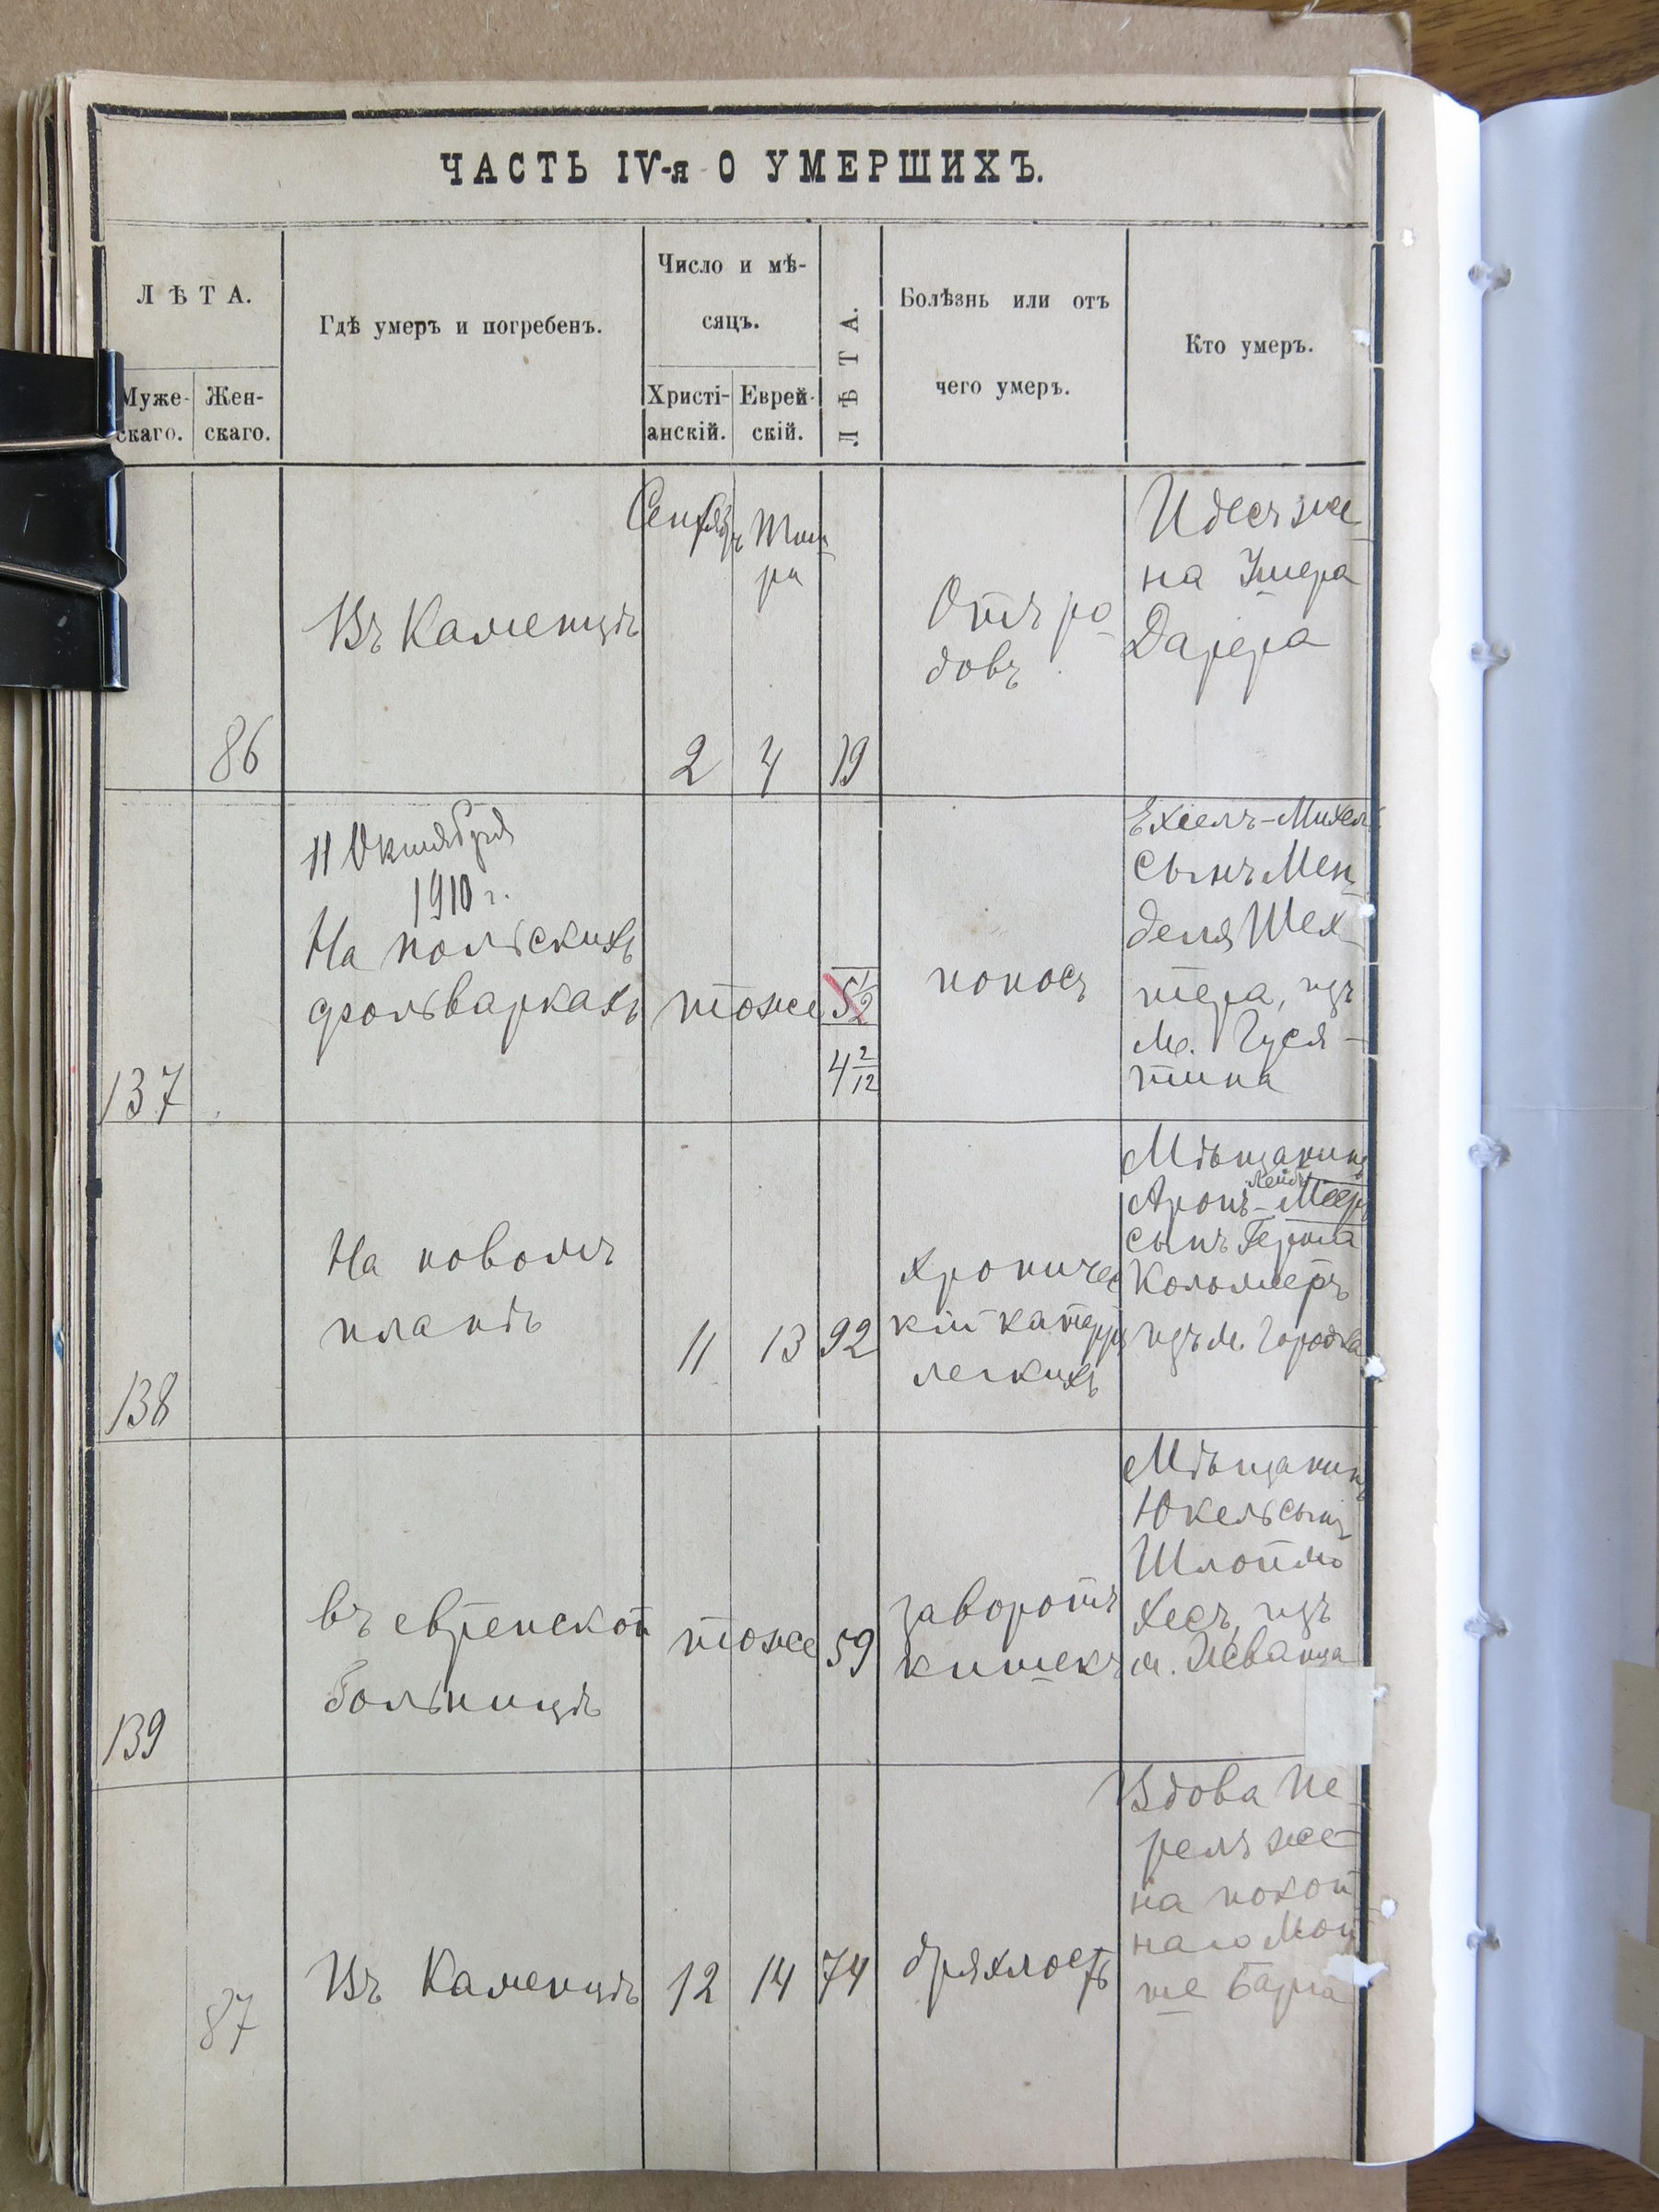 ЧАСТЬ IV-я О УМЕРШИХЪ.
ЛѢТА.
Муже-
скаго.
Жен-
скаго.
Гдѣ умеръ и погребенъ.
Число и мѣ-
сяцъ.
Христі-
анскій.
Еврей-
скій.
ЛѢТА.
Болѣзнь или отъ
чего умеръ.
Кто умеръ.
86
Въ Каменцѣ
Сентябрь
Тиш-
ри
2
4
19
Отъ ро-
довъ
Идесъ же-
на Ушера
Дарера
137
11 Октября
1910 г.
На польскихъ
фольваркахъ
тоже
5 1/2
4 2/12
поносъ
Ехіелъ-Михель
сынъ Мен-
деля Шех-
тера, изъ
м. Гуся-
тина
138
На новомъ
планѣ
11
13
92
Хроничес
кій катарръ
легкихъ
Мѣщанинъ
Лейбъ
Аронъ-Мееръ
сынъ Герша
Коломеръ
изъ м. Городка
139
въ еврейской
больницѣ
тоже
59
заворотъ
кишекъ
Мѣщанинъ
Юкель сынъ
Шлоймо
Хесъ, изъ
м. Жванца
87
Въ Каменцѣ
12
14
74
дряхлость
Вдова Пе-
релъ же-
на покой
наго Мой
ше Барга